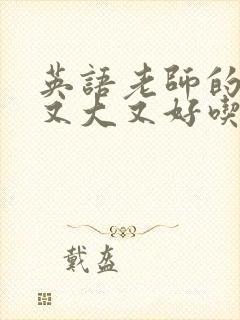 英語老師的
又大又好喫
戴盔